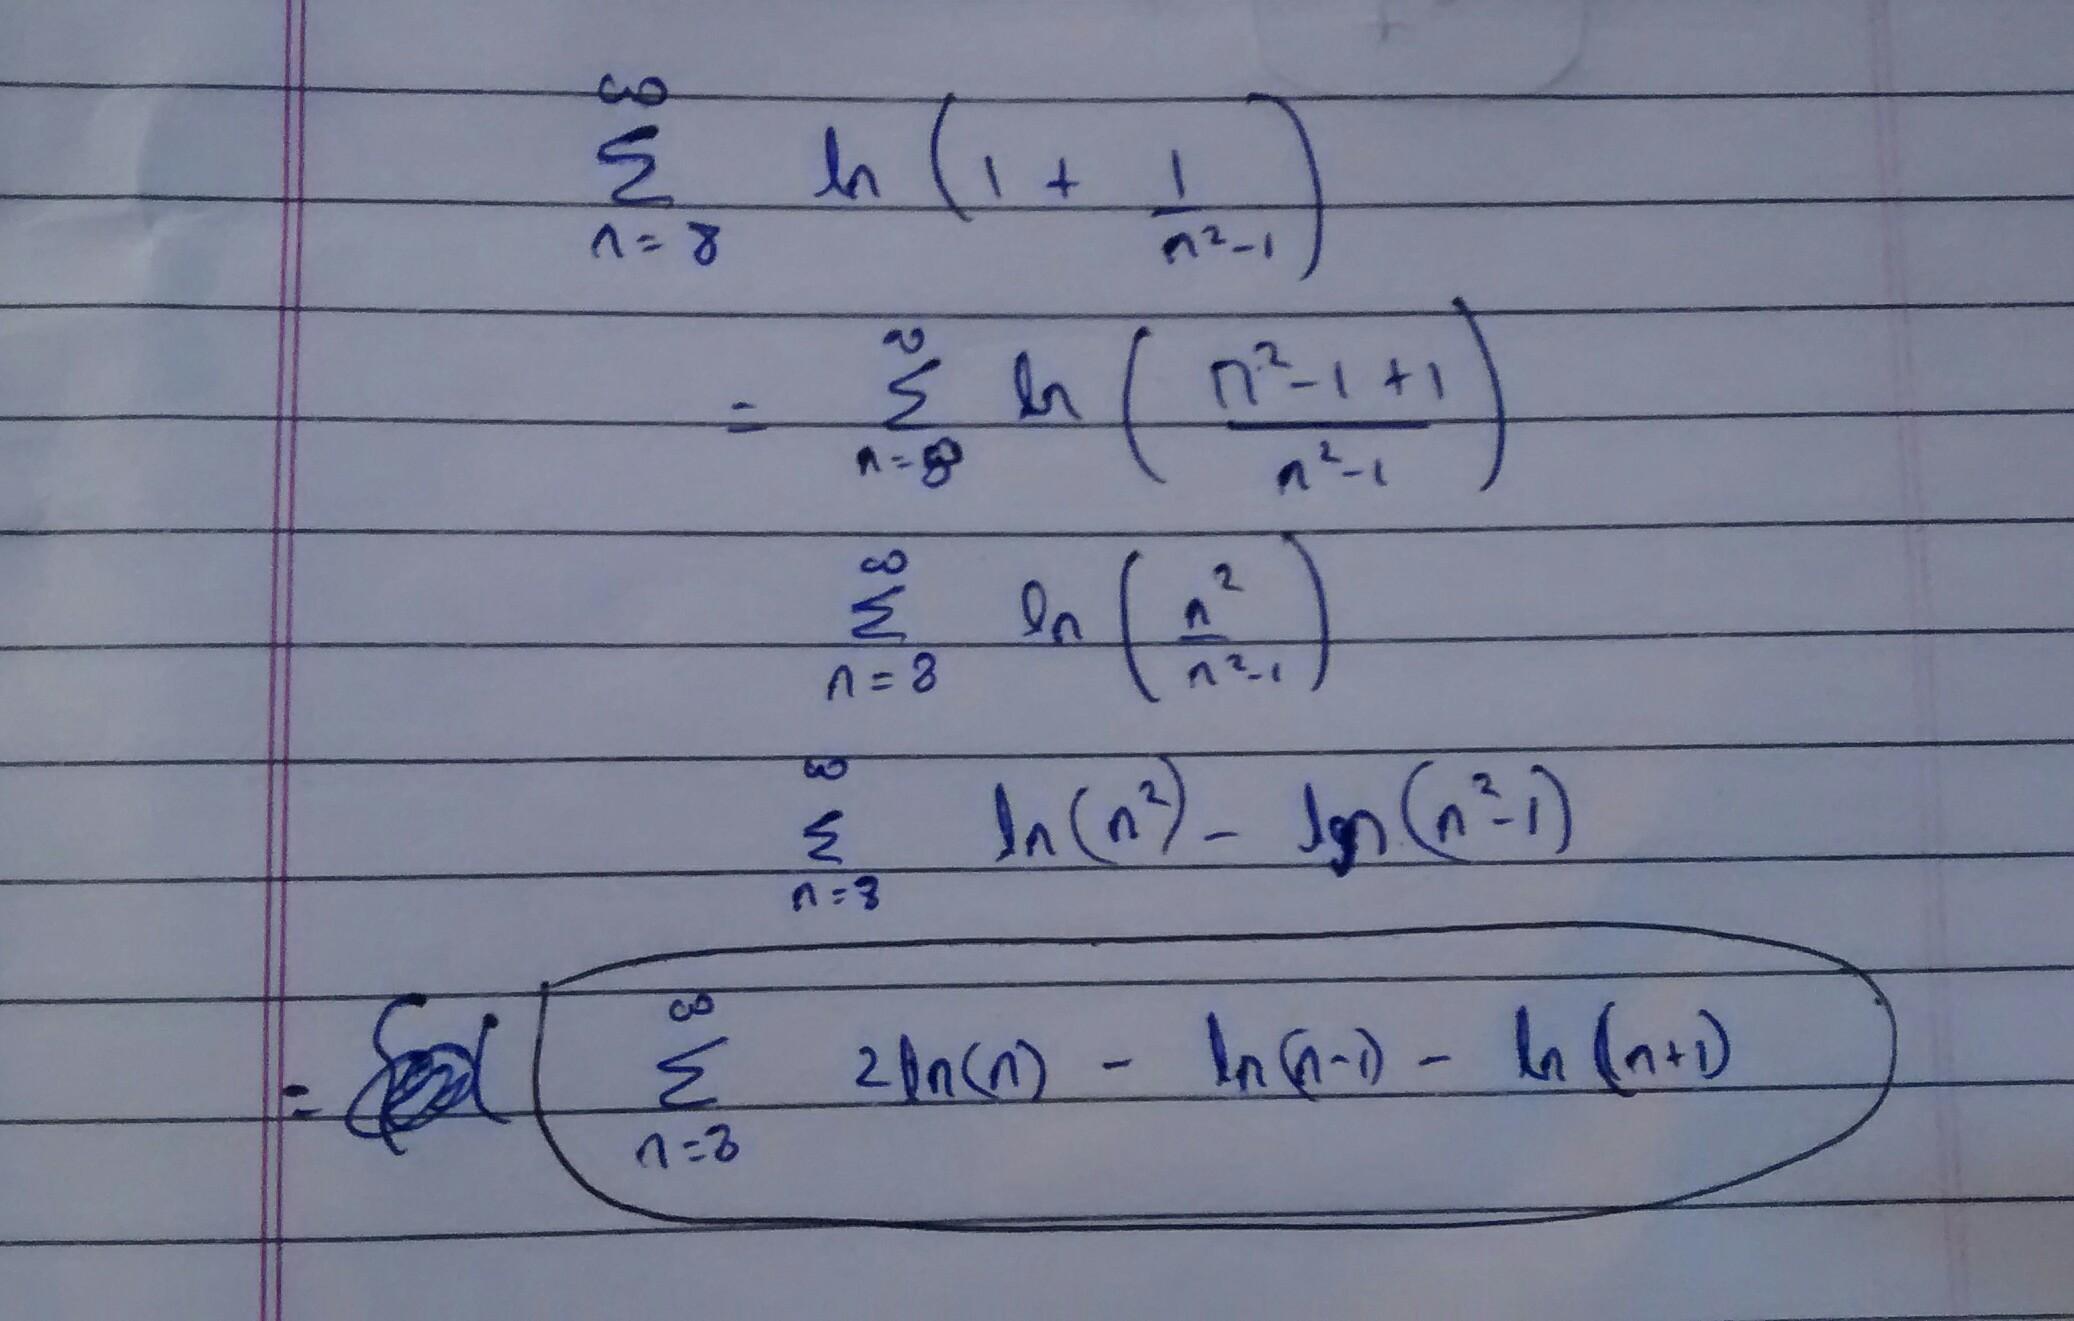 ∞ Σ n=8 ln (1 + 1/(n²-1))
= ∞ Σ n=8 ln ((n²-1+1)/(n²-1))
∞ Σ n=8 ln (n²/(n²-1))
∞ Σ n=8 ln(n²) - ln(n²-1)
= ∞ Σ n=8 2ln(n) - ln(n-1) - ln(n+1)